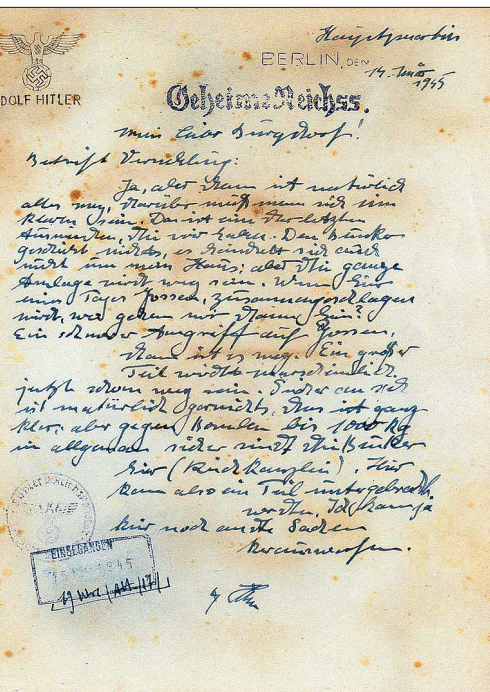 Hauptquartier
BERLIN, DEN
14. März
1945
DOLF HITLER
Geheime Reichss.
Mein lieber Burgdorf!
Betrifft
Ja, aber dann ist natürlich
alles weg, darüber muß man sich im
klaren sein. Das ist eine der letzten
die wir haben. Dem Bunker
geschieht nichts, es handelt sich auch
nicht um mein Haus; aber die ganze
Anlage wird weg sein. Wenn hier
eines Tages Zossen, zusammengeschlagen
wird, wo gehen wir dann hin?
Ein schwerer Angriff auf Zossen,
dann ist es weg. Ein großer
Teil wird wahrscheinlich
jetzt schon weg sein. Sicher an sich
ist natürlich garnichts, das ist ganz
klar; aber gegen Bomben bis 1000 kg
im allgemeinen sicher sind die Bunker
hier (Reichkanzlei). Hier
kann also ein Teil untergebracht
werden. Ich kann ja
hier noch Sachen
herauswerfen.
EINGEGANGEN
1945